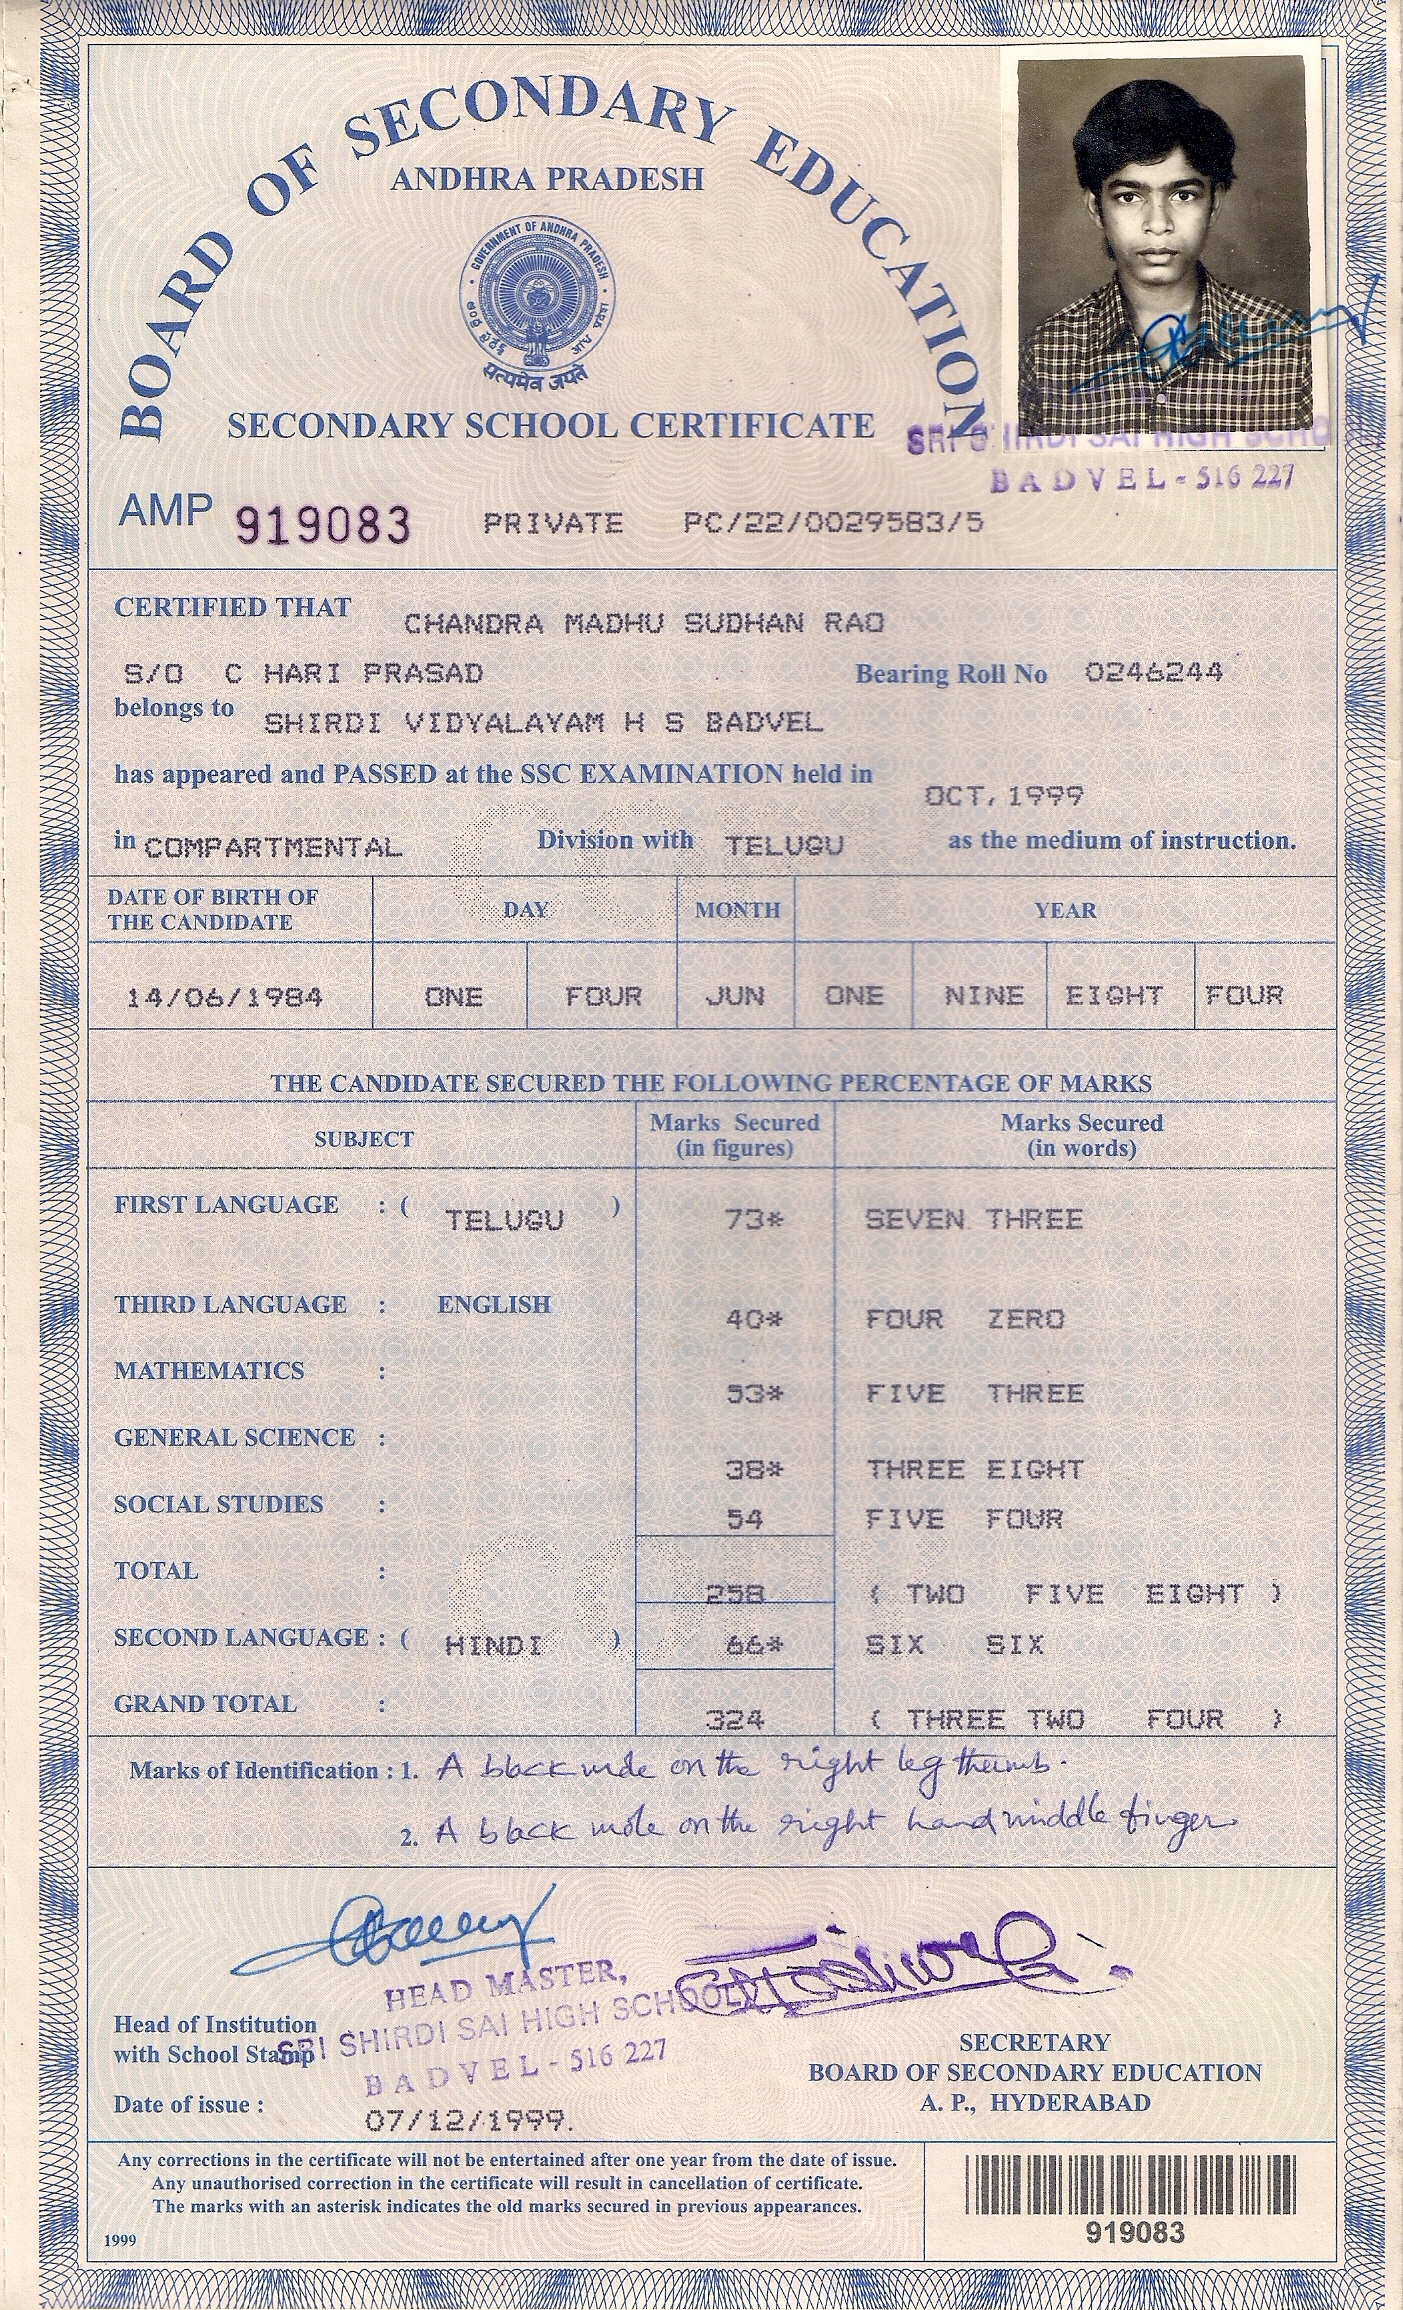 BOARD OF SECONDARY EDUCATION
ANDHRA PRADESH
GOVERNMENT OF ANDHRA PRADESH
सत्यमेव जयते
SECONDARY SCHOOL CERTIFICATE
SRI SHIRDI SAI HIGH SCHO
BADVEL - 516 227
AMP 919083 PRIVATE PC/22/0029583/5
CERTIFIED THAT CHANDRA MADHU SUDHAN RAO
S/O C HARI PRASAD Bearing Roll No 0246244
belongs to SHIRDI VIDYALAYAM H S BADVEL
has appeared and PASSED at the SSC EXAMINATION held in OCT, 1999
in COMPARTMENTAL Division with TELUGU as the medium of instruction.
DATE OF BIRTH OF THE CANDIDATE DAY MONTH YEAR
14/06/1984 ONE FOUR JUN ONE NINE EIGHT FOUR
THE CANDIDATE SECURED THE FOLLOWING PERCENTAGE OF MARKS
SUBJECT Marks Secured (in figures) Marks Secured (in words)
FIRST LANGUAGE : ( TELUGU ) 73* SEVEN THREE
THIRD LANGUAGE : ENGLISH 40* FOUR ZERO
MATHEMATICS : 53* FIVE THREE
GENERAL SCIENCE : 38* THREE EIGHT
SOCIAL STUDIES : 54 FIVE FOUR
TOTAL : 258 ( TWO FIVE EIGHT )
SECOND LANGUAGE : ( HINDI ) 66* SIX SIX
GRAND TOTAL : 324 ( THREE TWO FOUR )
Marks of Identification : 1. A black mole on the right leg thumb.
2. A black mole on the right hand middle finger
HEAD MASTER,
SRI SHIRDI SAI HIGH SCHOOL
BADVEL - 516 227
Head of Institution
with School Stamp
Date of issue : 07/12/1999.
SECRETARY
BOARD OF SECONDARY EDUCATION
A. P., HYDERABAD
Any corrections in the certificate will not be entertained after one year from the date of issue.
Any unauthorised correction in the certificate will result in cancellation of certificate.
The marks with an asterisk indicates the old marks secured in previous appearances.
1999
919083